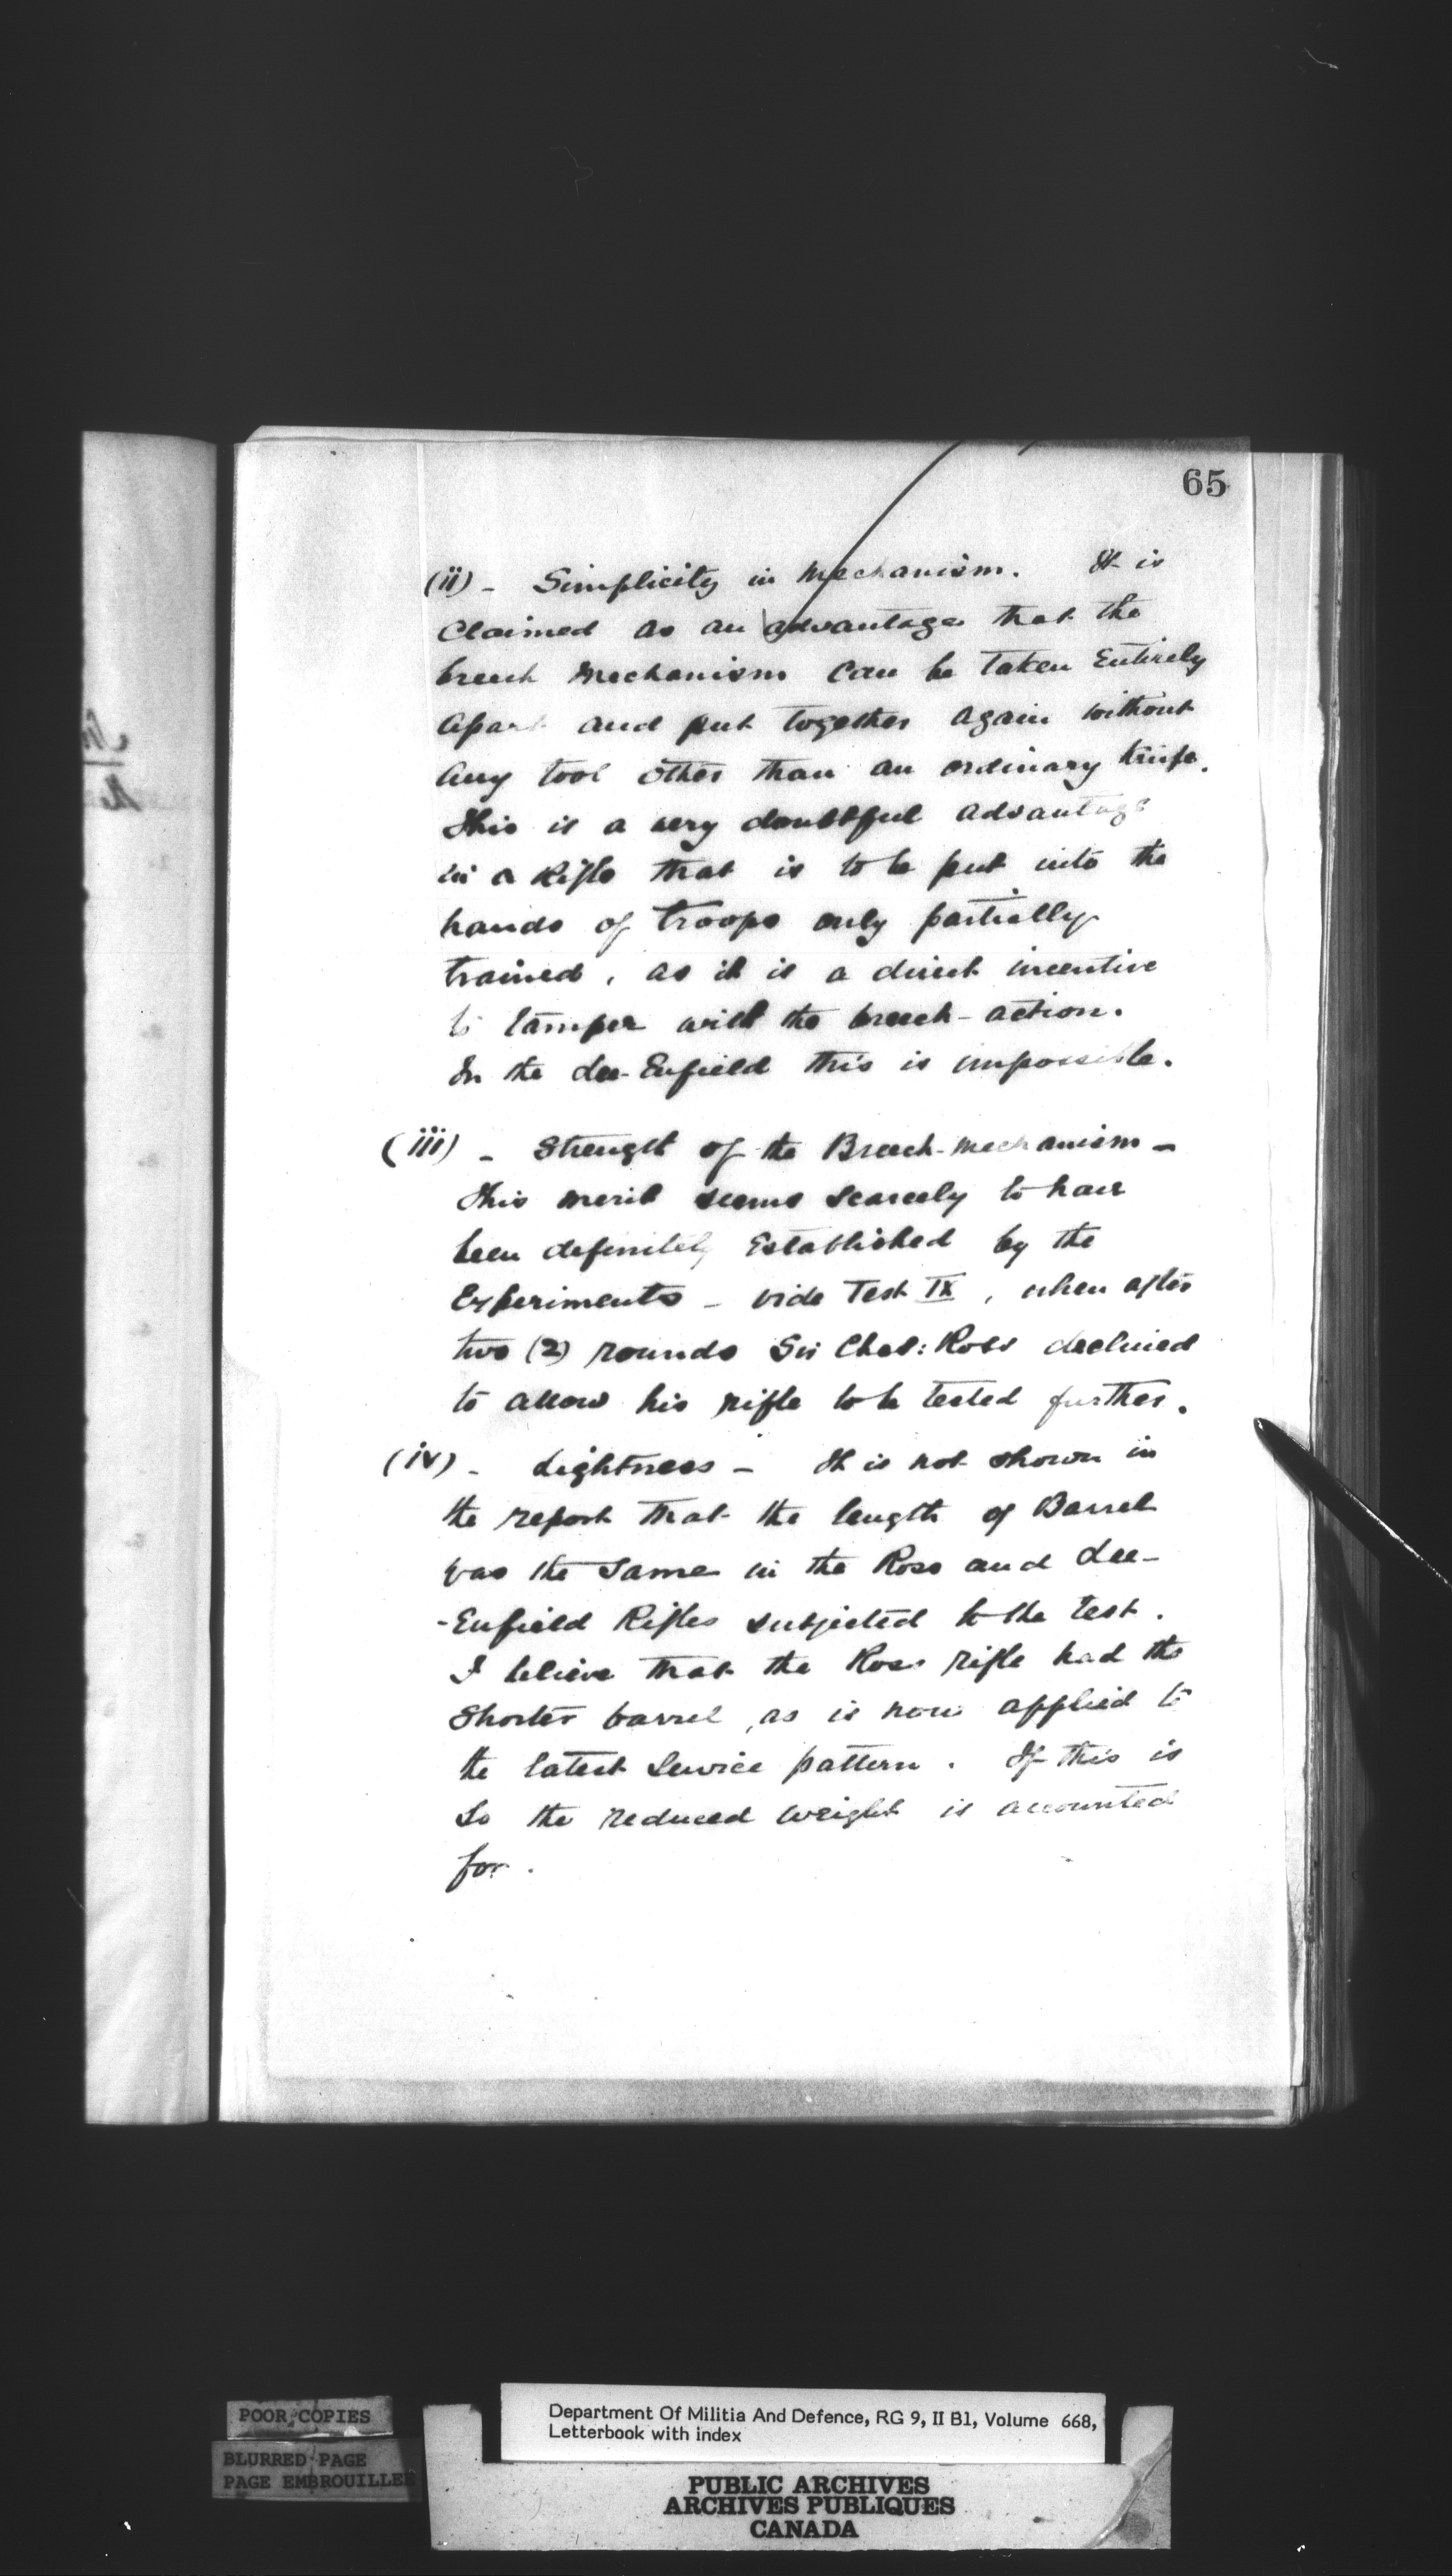 65
(ii) - Simplicity in Mechanism. It is
Claimed as an advantage that the
breech Mechanism Can be taken Entirely
Apart and put together again without
Any tool other than an ordinary knife.
This is a very doubtful advantage
in a Rifle that is to be put into the
hands of troops only partially
trained, as it is a direct incentive
to tamper with the breech-action.
In the Lee-Enfield this is impossible.
(iii) - Strength of the Breech-Mechanism -
This merit seems scarcely to have
been definitely Established by the
Experiments - vide Test IX, when after
two (2) rounds Sir Chas: Ross declined
to allow his rifle to be tested further.
(iv) - Lightness - It is not shown in
the report that the length of Barrel
was the same in the Ross and Lee-
-Enfield Rifles subjected to the test.
I believe that the Ross rifle had the
Shorter barrel, as is now applied to
the latest Service pattern. If this is
so the reduced weight is accounted
for.
POOR COPIES
BLURRED PAGE
PAGE EMBROUILLEE
Department Of Militia And Defence, RG 9, II B1, Volume 668,
Letterbook with index
PUBLIC ARCHIVES
ARCHIVES PUBLIQUES
CANADA